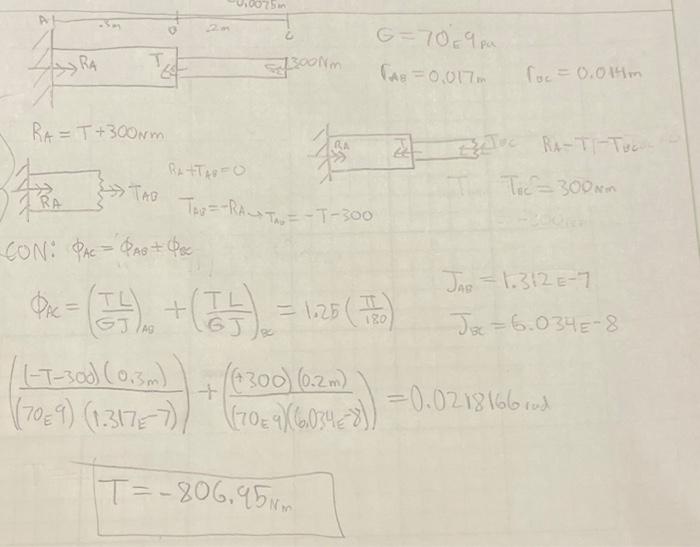 0.0075m
A .3m B .2m C
G = 70E9 Pa
RA T 300Nm
rAB = 0.017m rBC = 0.014m
RA = T + 300Nm
RA T TBC RA - T - TBC
RA + TAB = 0
RA TAB
TBC = 300Nm
TAB = -RA → TAB = -T - 300
CON: ΦAC = ΦAB + ΦBC
JAB = 1.312E-7
ΦAC = (TL/GJ)AB + (TL/GJ)BC = 1.25 (π/180)
JBC = 6.034E-8
((-T-300)(0.3m)/(70E9)(1.317E-7)) + ((+300)(0.2m)/(70E9)(6.034E-8)) = 0.0218166 rad
T = -806.95Nm